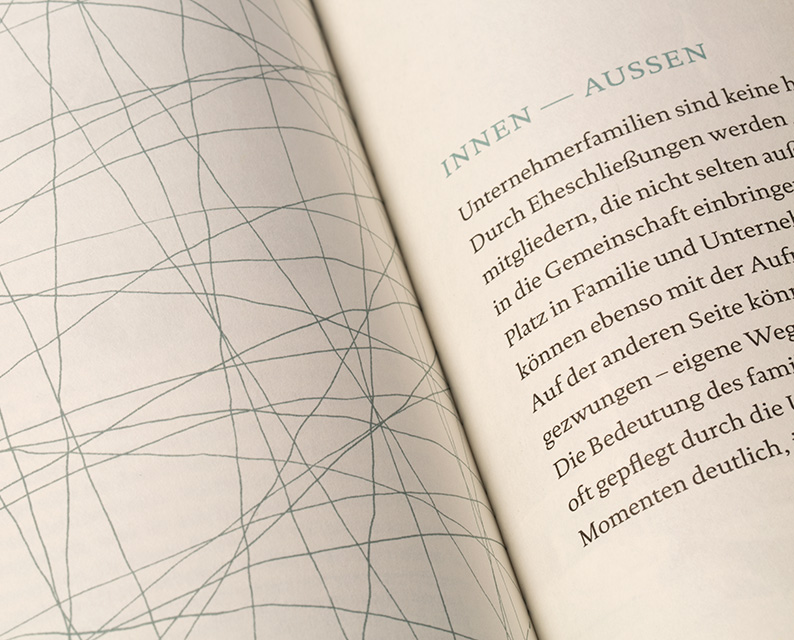 INNEN — AUSSEN
Unternehmerfamilien sind keine
Durch Eheschließungen werden
mitgliedern, die nicht selten auf
in die Gemeinschaft einbringen
Platz in Familie und
können ebenso mit der
Auf der anderen Seite
gezwungen – eigene
Die Bedeutung des
oft gepflegt durch die
Momenten deutlich,